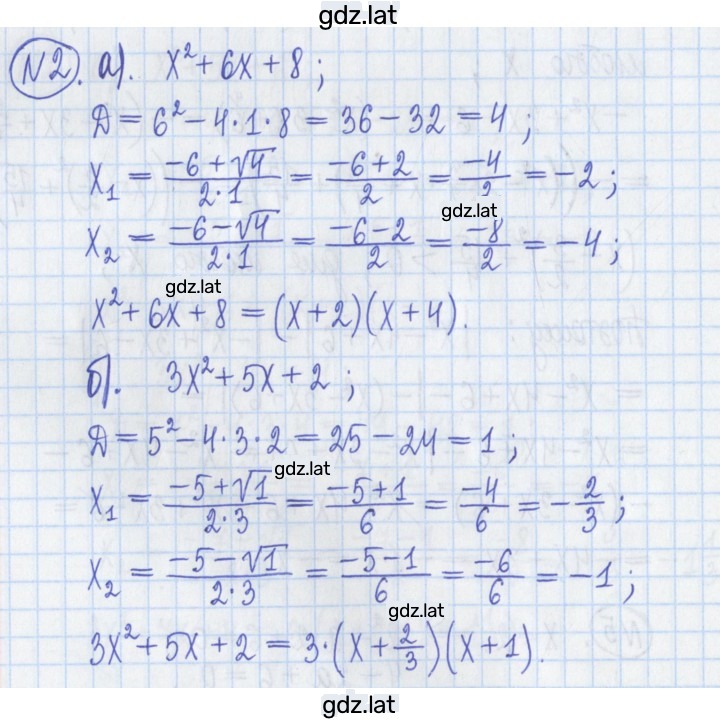 gdz.lat
N2. а). x² + 6x + 8 ;
Д = 6² − 4·1·8 = 36 − 32 = 4 ;
x₁ = (−6 + √4)/(2·1) = (−6 + 2)/2 = −4/2 = −2 ;
gdz.lat
x₂ = (−6 − √4)/(2·1) = (−6 − 2)/2 = −8/2 = −4 ;
gdz.lat
x² + 6x + 8 = (x + 2)(x + 4).
б). 3x² + 5x + 2 ;
Д = 5² − 4·3·2 = 25 − 24 = 1 ;
gdz.lat
x₁ = (−5 + √1)/(2·3) = (−5 + 1)/6 = −4/6 = −2/3 ;
x₂ = (−5 − √1)/(2·3) = (−5 − 1)/6 = −6/6 = −1 ;
gdz.lat
3x² + 5x + 2 = 3·(x + 2/3)(x + 1).
gdz.lat